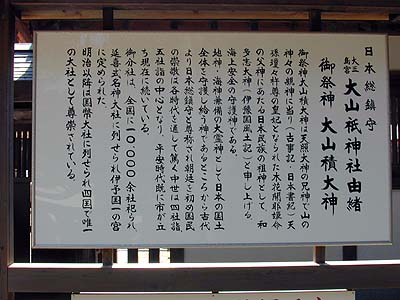 日本総鎮守
大三島宮 大山祇神社由緒
御祭神 大山積大神
御祭神大山積大神は天照大神の兄神で山の
神々の親神に当り(古事記・日本書紀)天
孫瓊々杵尊の皇妃となられた木花開耶姫命
の父神にあたる日本民族の祖神として、和
多志大神(伊豫国風土記)と申し上げる
海上安全の守護神である。
地神・海神兼備の大霊神として日本の国土
全体を守護し給う神であるところから古代
より日本総鎮守と尊称され朝廷を初め国民
の崇敬は各時代を通して篤く中世は四社詣
五社詣の中心となり、平安時代既に市が立
ち現在に続いている。
御分社は、全国に一〇〇〇〇余社祀られ、
延喜式名神大社に列せられ伊予国一の宮
に定められた。
明治以降は国幣大社に列せられ四国で唯一
の大社として尊崇されている。